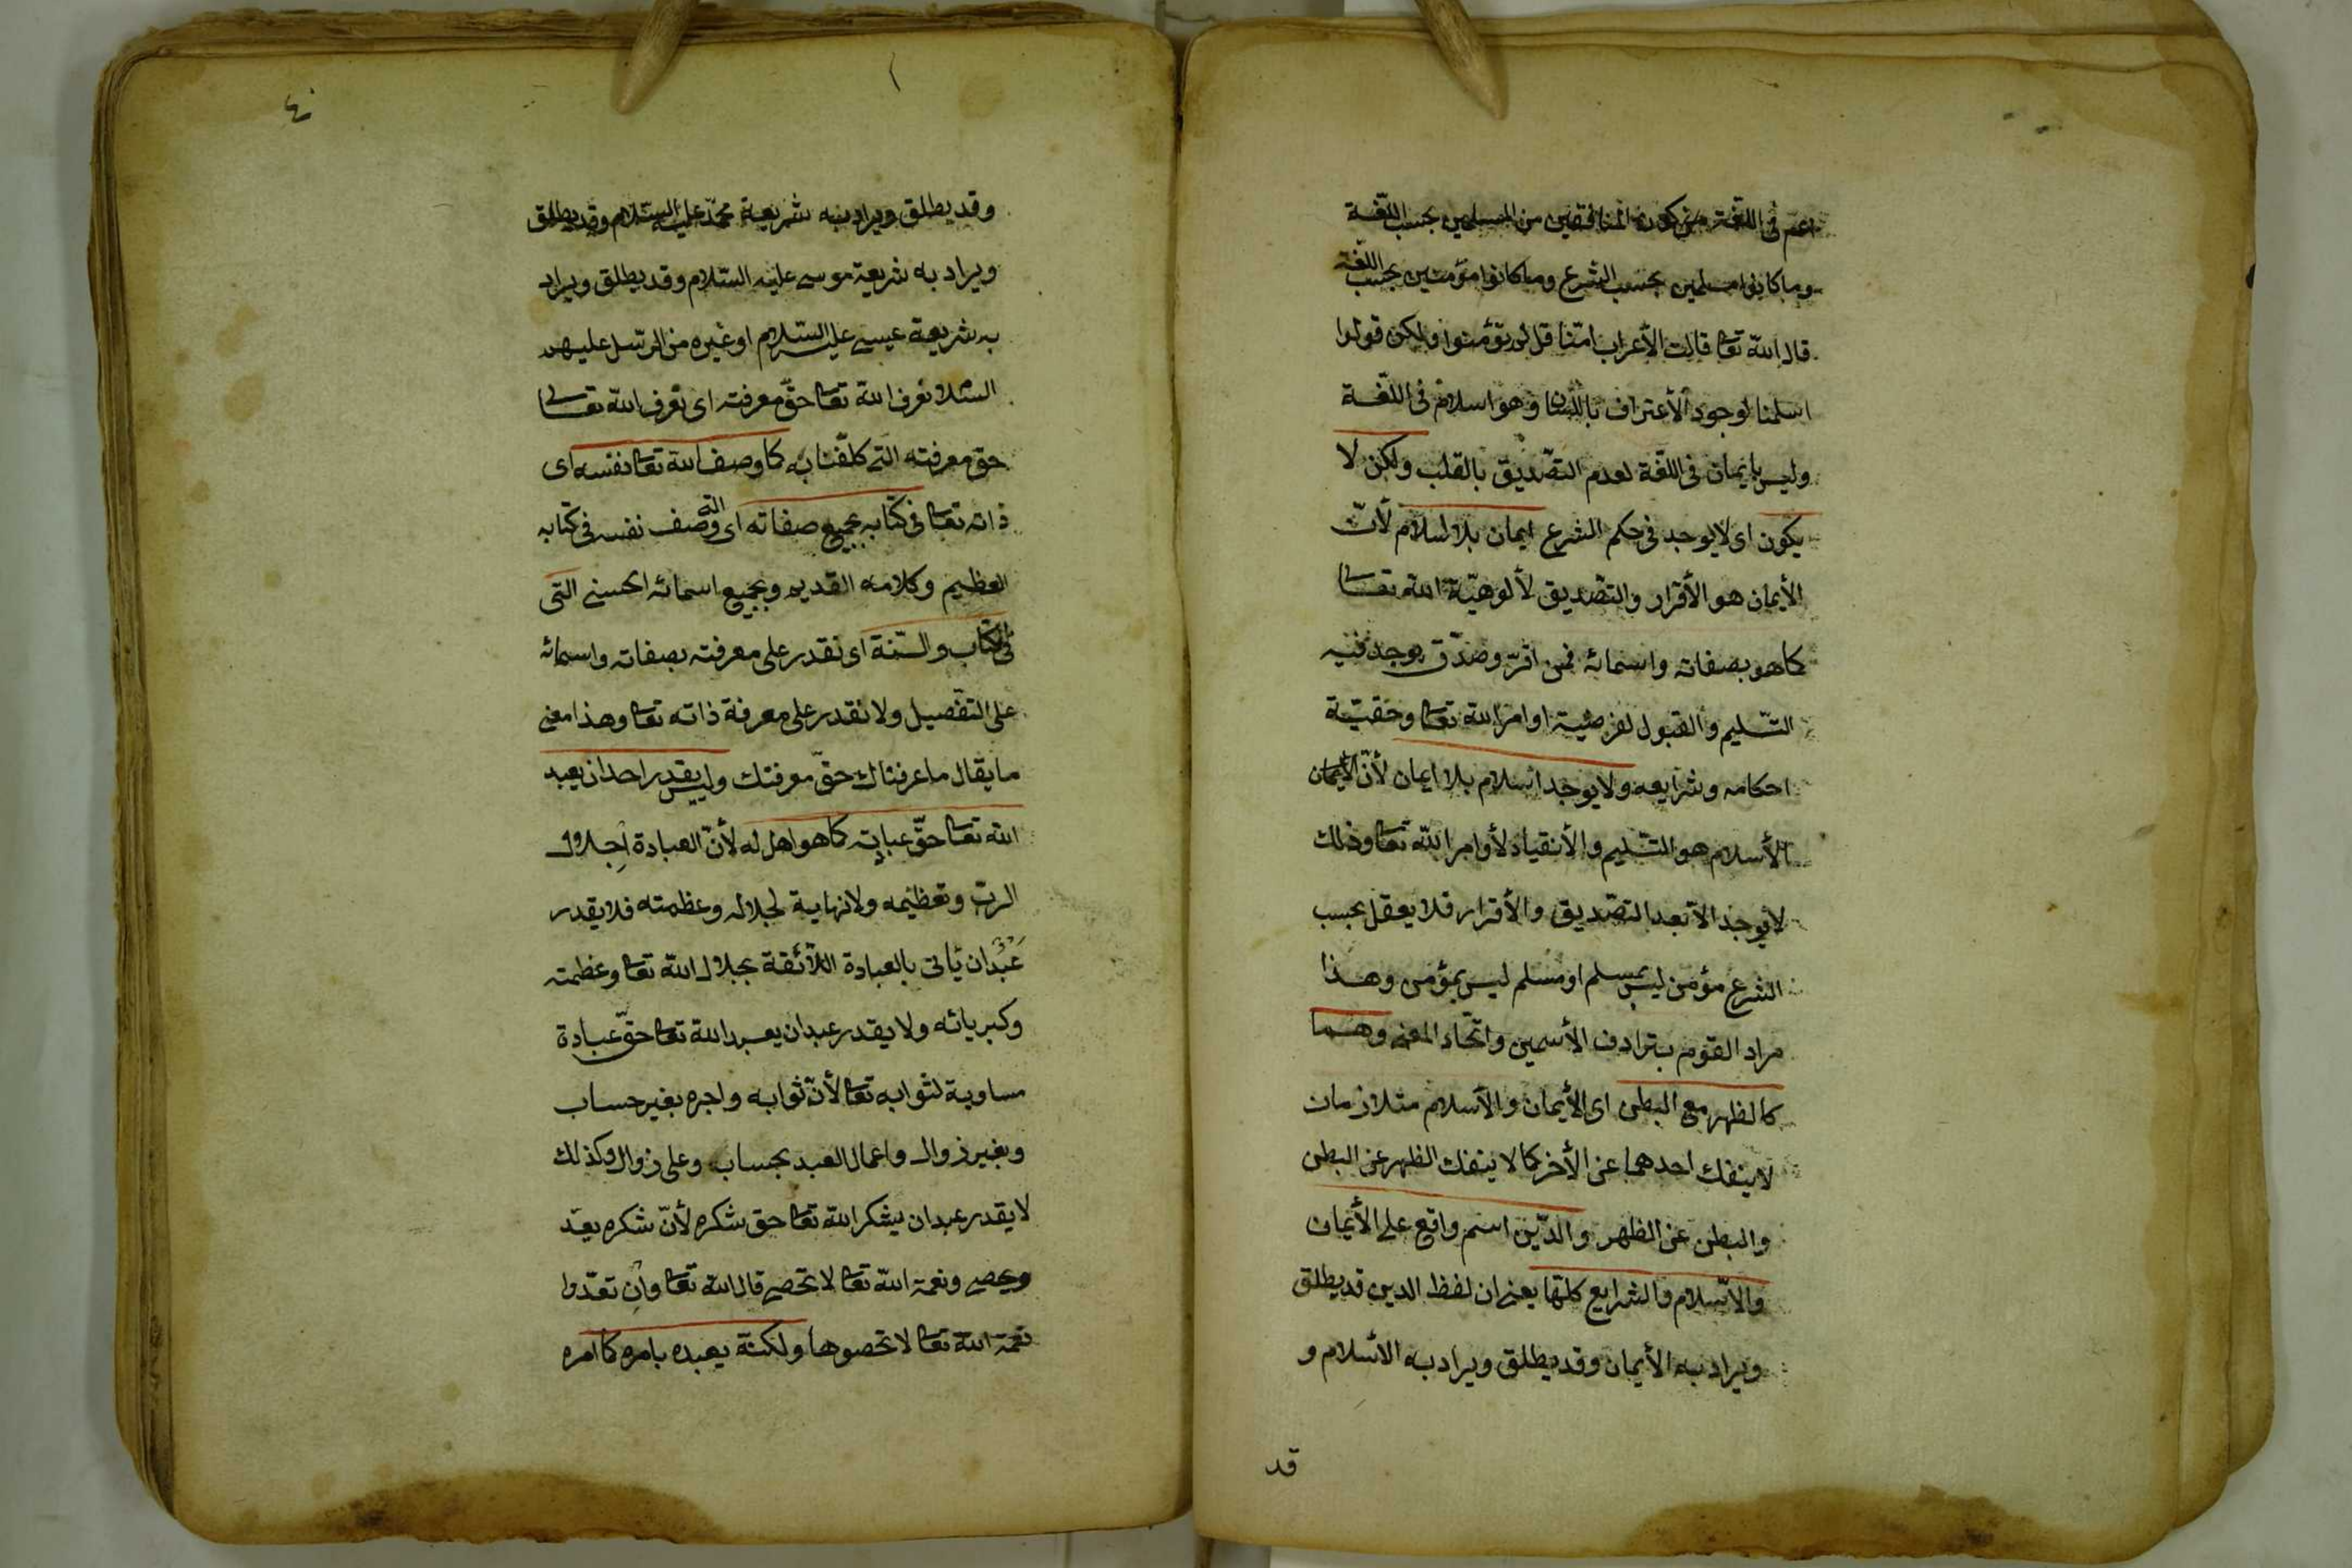 اعم فى اللغة من كون المنافقين من المسلمين بحسب اللغة
وما كانوا مسلمين بحسب الشرع وما كانوا مؤمنين بحسب اللغة
قال الله تعا قالت الأعراب امنا قل لم تؤمنوا ولكن قولوا
اسلمنا لوجود الأعتراف باللسان وهو اسلام فى اللّغة
وليس بايمان فى اللغة لعدم التصديق بالقلب ولكن لا
يكون اى لا يوجد فى حكم الشرع ايمان بلا اسلام لأنّ
الأيمان هو الأقرار والتصديق لألوهيّة الله تعالى
كما هو بصفاته واسمائه فمن اقرّ وصدّق يوجد فيه
التسليم والقبول لفرضية اوامر الله تعا وحقيّة
احكامه وشرايعه ولا يوجد اسلام بلا ايمان لأنّ الأيمان
الأسلام هو التسليم والأنقياد لأوامر الله تعا وذلك
لا يوجد الا بعد التصديق والأقرار فلا يعقل بحسب
الشرع مؤمن ليس بمسلم او مسلم ليس بمؤمن وهذا
مراد القوم بترادف الأسمين واتحاد المعنى وهما
كالظهر مع البطن اى الأيمان والأسلام متلازمان
لا ينفك احدهما عن الأخر كما لا ينفك الظهر عن البطن
والبطن عن الظهر والدّين اسم واقع على الأيمان
والاسلام والشرايع كلها يعنى ان لفظ الدين قد يطلق
ويراد به الأيمان وقد يطلق ويراد به الاسلام و
قد
٤
وقد يطلق ويراد به شريعة محمّد عليه السّلام وقد يطلق
ويراد به شريعة موسى عليه السّلام وقد يطلق ويراد
به شريعة عيسى عليه السّلام او غيره من الرسل عليهم
السّلام نعرف الله تعا حقّ معرفته اى نعرف الله تعالى
حق معرفته التى كلّفنا به كما وصف الله تعا نفسه اى
ذاته تعا فى كتابه بجميع صفاته اى التى وصف نفسه فى كتابه
العظيم وكلامه القديم وبجميع اسمائه الحسنى التى
فى الكتاب والسّنة اى نقدر على معرفته بصفاته واسمائه
على التفصيل ولا نقدر على معرفة ذاته تعا وهذا معنى
ما يقال ما عرفناك حقّ معرفتك وليس يقدر احد ان يعبد
الله تعا حقّ عبادته كما هو اهل له لأنّ العبادة اجلال
الربّ وتعظيمه ولا نهاية لجلاله وعظمته فلا يقدر
عبد ان يأتى بالعبادة اللائقة بجلال الله تعا وعظمته
وكبريائه ولا يقدر عبد ان يعبد الله تعا حقّ عبادة
مساوية لثوابه تعا لأنّ ثوابه واجره بغير حساب
وبغير زوال واعمال العبد بحساب وعلى زوال وكذلك
لا يقدر عبد ان يشكر الله تعا حق شكره لأنّ شكره يعدّ
ويحصى ونعمة الله تعا لا تحصى قال الله تعا وان تعدّوا
نعمة الله تعا لا تحصوها ولكنّه يعبده بامره كما امره